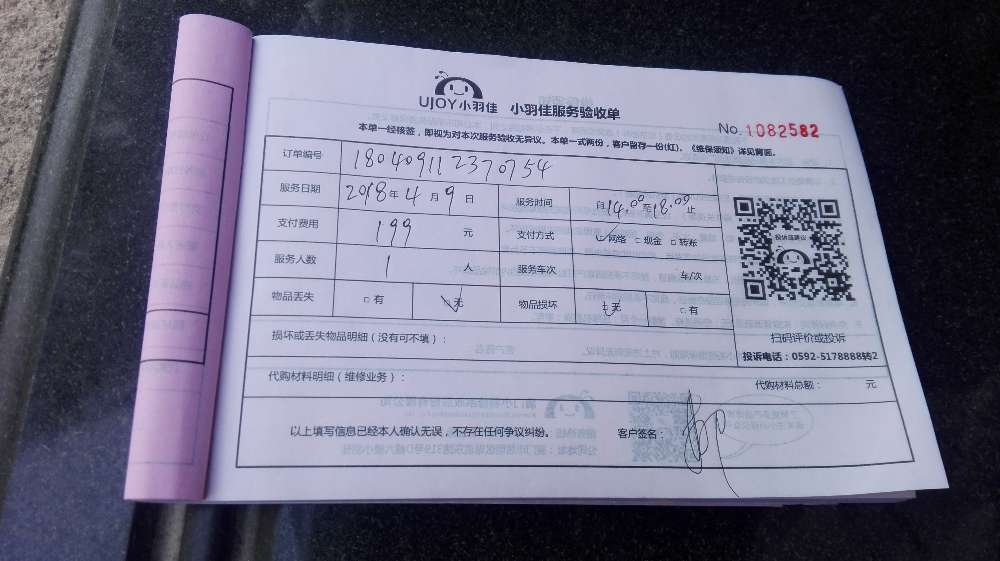 UJOY小羽佳 小羽佳服务验收单
No. 1082582
本单一经核签，即视为对本次服务验收无异议。本单一式两份，客户留存一份(红)。《维保须知》详见背面。
订单编号 180409112370754
服务日期 2018年4月9日 服务时间 自14:00至18:00止
支付费用 199 元 支付方式 网络 □现金 □转账
服务人数 1 人 服务车次 车/次
物品丢失 □有 无 物品损坏 无 □有
投诉或建议
损坏或丢失物品明细（没有可不填）：
扫码评价或投诉
投诉电话：0592-5178888
代购材料明细（维修业务）：
代购材料总额： 元
以上填写信息已经本人确认无误，不存在任何争议纠纷。 客户签名：